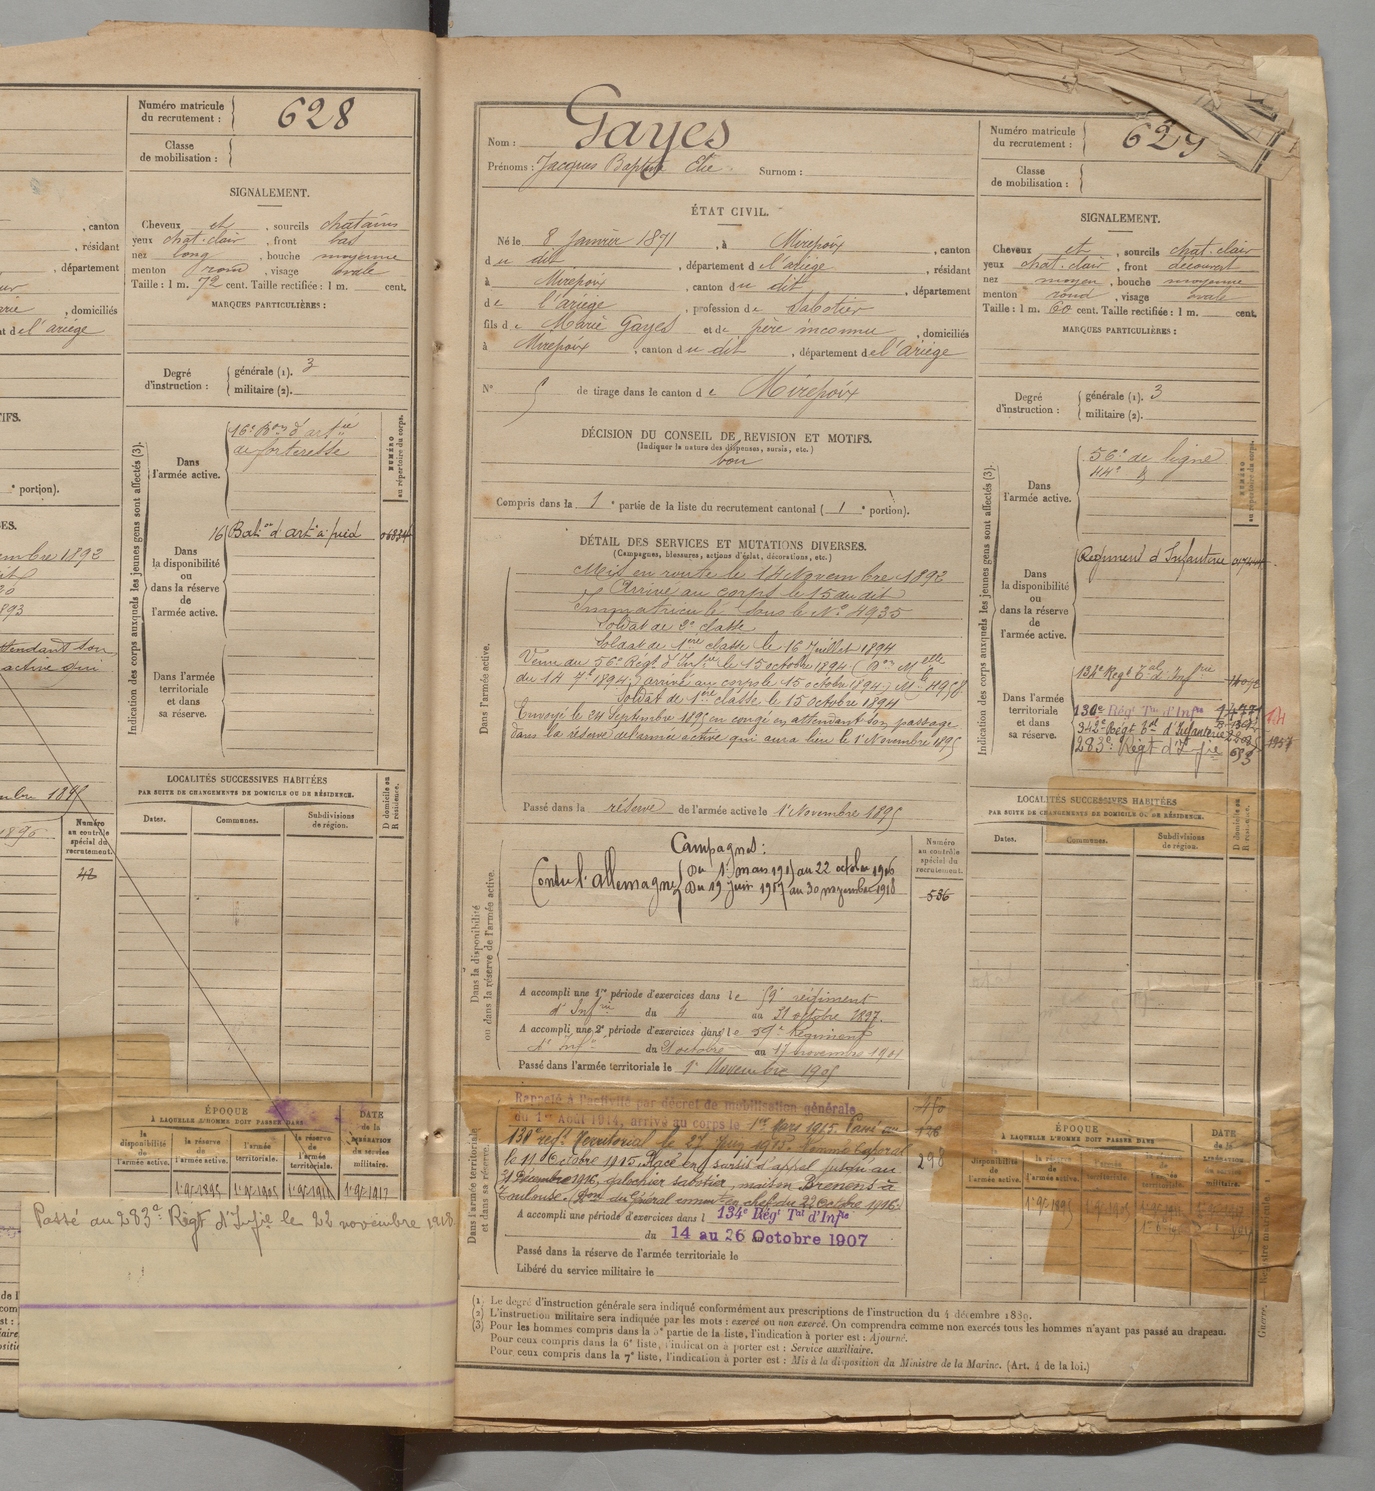 Numéro matricule
du recrutement : 628
Classe
de mobilisation :
SIGNALEMENT.
Cheveux et , sourcils chatains
yeux chat. clair , front bas
nez long , bouche moyenne
menton rond , visage ovale
Taille : 1 m. 72 cent. Taille rectifiée : 1 m. cent.
MARQUES PARTICULIÈRES :
Degré
d'instruction :
générale (1). 3
militaire (2).
, canton
, résidant
, département
, domiciliés
t de l'ariège
Indication des corps auxquels les jeunes gens sont affectés (3).
NUMÉRO
au répertoire du corps.
Dans
l'armée active.
16e Bon d'artie
de forteresse
16 Baton d'artie à pied
Dans
la disponibilité
ou
dans la réserve
de
l'armée active.
Dans l'armée
territoriale
et dans
sa réserve.
e portion).
embre 1892
1893
attendant son
active qui
LOCALITÉS SUCCESSIVES HABITÉES
PAR SUITE DE CHANGEMENTS DE DOMICILE OU DE RÉSIDENCE.
Dates. Communes. Subdivisions
de région.
D domicile ou
R résidence.
Numéro
au contrôle
spécial du
recrutement.
42
ÉPOQUE
À LAQUELLE L'HOMME DOIT PASSER DANS
DATE
de la
LIBÉRATION
du service
militaire.
la
disponibilité
de
l'armée active.
la réserve
de
l'armée active.
l'armée
territoriale.
la réserve
de
l'armée
territoriale.
Passé au 283e Régt d'Infie le 22 novembre 1918
Nom : Gayes
Prénoms : Jacques Baptiste Elie Surnom :
ÉTAT CIVIL.
Né le 8 Janvier 1871 , à Mirepoix , canton
d u dit , département d e l'ariège , résidant
à Mirepoix , canton d u dit , département
d e l'ariège , profession de Sabotier
fils d e Marie Gayes et de père inconnu , domiciliés
à Mirepoix , canton d u dit , département d e l'ariège
N° 5 de tirage dans le canton d e Mirepoix
DÉCISION DU CONSEIL DE REVISION ET MOTIFS.
(Indiquer la nature des dispenses, sursis, etc.)
bon
Compris dans la 1e partie de la liste du recrutement cantonal ( 1e portion).
DÉTAIL DES SERVICES ET MUTATIONS DIVERSES.
(Campagnes, blessures, actions d'éclat, décorations, etc.)
Dans l'armée active.
Mis en route le 14 Novembre 1892
Arrivé au corps le 15 du dit
Immatriculé sous le No 4935
Soldat de 2e classe
Soldat de 1ère classe le 16 Juillet 1894
Venu du 56e Régt d'Infie le 15 octobre 1894 (Don Melle
du 14 7e 1894) arrivé au corps le 15 octobre 1894; Mle 4958
Soldat de 1ère classe le 15 octobre 1894
Envoyé le 24 Septembre 1895 en congé en attendant son passage
dans la réserve de l'armée active qui aura lieu le 1e Novembre 1895
Passé dans la réserve de l'armée active le 1e Novembre 1895
Dans la disponibilité
ou dans la réserve de l'armée active.
Campagnes :
Contre l'allemagne
au 22 octobre 1916
Du 19 Juin 1917 au 30 novembre 1918
Numéro
au contrôle
spécial du
recrutement.
536
A accompli une 1re période d'exercices dans l e 59e régiment
d'Infrie du 4 au 31 octobre 1897.
A accompli une 2e période d'exercices dans l e 59e Régiment
d'Infie du 21 octobre au 17 novembre 1901
Passé dans l'armée territoriale le 1e Novembre 1905
Dans l'armée territoriale
et dans sa réserve.
Rappelé à l'activité par décret de mobilisation générale
du 1er Août 1914, arrivé au corps le 1er Mars 1915. Passé au
130e regt Territorial le 27 Juin 1915. Nommé Caporal
le 11 Octobre 1915. Placé en sursis d'appel jusqu'au
31 Décembre 1916, galochier sabotier, maison Brenens à
Toulouse. (Don du Général commt en chef du 22 Octobre 1916.
298
A accompli une période d'exercices dans l 134e Régt Tal d'Infie
du 14 au 26 Octobre 1907
Passé dans la réserve de l'armée territoriale le
Libéré du service militaire le
Numéro matricule
du recrutement : 629
Classe
de mobilisation :
SIGNALEMENT.
Cheveux et , sourcils chat. clair
yeux chat. clair , front découvert
nez moyen , bouche moyenne
menton rond , visage ovale
Taille : 1 m. 60 cent. Taille rectifiée : 1 m. cent.
MARQUES PARTICULIÈRES :
Degré
d'instruction :
générale (1). 3
militaire (2).
Indication des corps auxquels les jeunes gens sont affectés (3).
Dans
l'armée active.
56e de ligne
Dans
la disponibilité
ou
dans la réserve
de
l'armée active.
Régiment d'Infanterie
Dans l'armée
territoriale
et dans
sa réserve.
134e Régt Tal d'Infrie
130e Régt Tal d'Infie
342e Régt Tal d'Infanterie
283e Régt d'Infie
LOCALITÉS SUCCESSIVES HABITÉES
PAR SUITE DE CHANGEMENTS DE DOMICILE OU DE RÉSIDENCE.
Dates. Communes. Subdivisions
de région.
D domicile ou
R résidence.
ÉPOQUE
À LAQUELLE L'HOMME DOIT PASSER DANS
DATE
(1) Le degré d'instruction générale sera indiqué conformément aux prescriptions de l'instruction du 4 décembre 1889.
(2) L'instruction militaire sera indiquée par les mots : exercé ou non exercé. On comprendra comme non exercés tous les hommes n'ayant pas passé au drapeau.
(3) Pour les hommes compris dans la 5e partie de la liste, l'indication à porter est : Ajourné.
Pour ceux compris dans la 6e liste, l'indication à porter est : Service auxiliaire.
Pour ceux compris dans la 7e liste, l'indication à porter est : Mis à la disposition du Ministre de la Marine. (Art. 4 de la loi.)